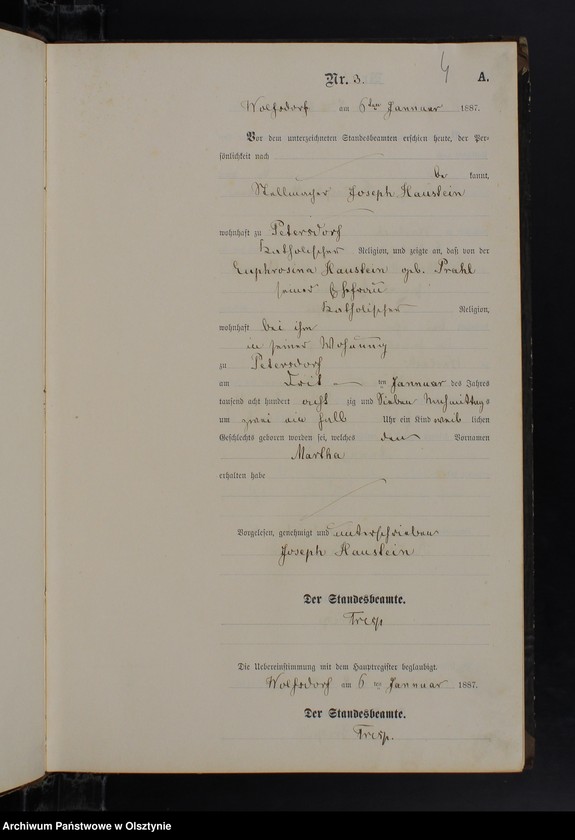 4
Nr. 3. A.
Wolfsdorf am 6ten Januar 1887.
Vor dem unterzeichneten Standesbeamten erschien heute, der Per-
sönlichkeit nach
be kannt,
Stellmacher Joseph Haustein
wohnhaft zu Petersdorf
katholischer Religion, und zeigte an, daß von der
Euphrosina Haustein geb. Prahl
seiner Ehefrau
katholischer Religion,
wohnhaft bei ihm
in seiner Wohnung
zu Petersdorf
am Drit ten Januar des Jahres
tausend acht hundert acht zig und Sieben Nachmittags
um zwei ein halb Uhr ein Kind weib lichen
Geschlechts geboren worden sei, welches den Vornamen
Martha
erhalten habe
Vorgelesen, genehmigt und unterschrieben
Joseph Haustein
Der Standesbeamte.
Tresp
Die Uebereinstimmung mit dem Hauptregister beglaubigt.
Wolfsdorf am 6 ten Januar 1887.
Der Standesbeamte.
Tresp.
Archiwum Państwowe w Olsztynie